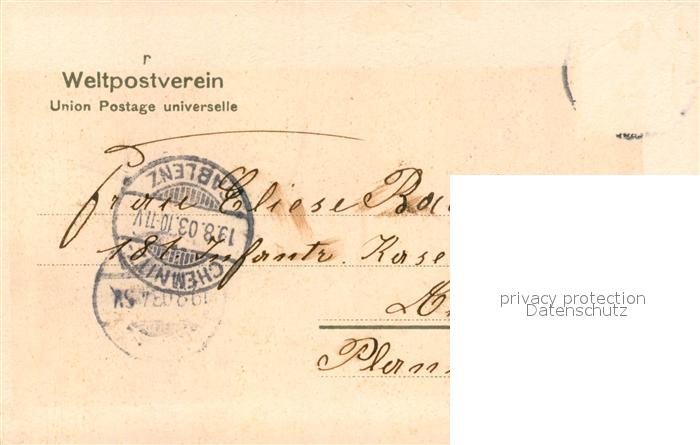 r
Weltpostverein
Union Postage universelle
Frau Eliese Ba
181 Infantr. Kase
Plan
CHEMNITZ
19.8.03.10-11V
privacy protection
Datenschutz